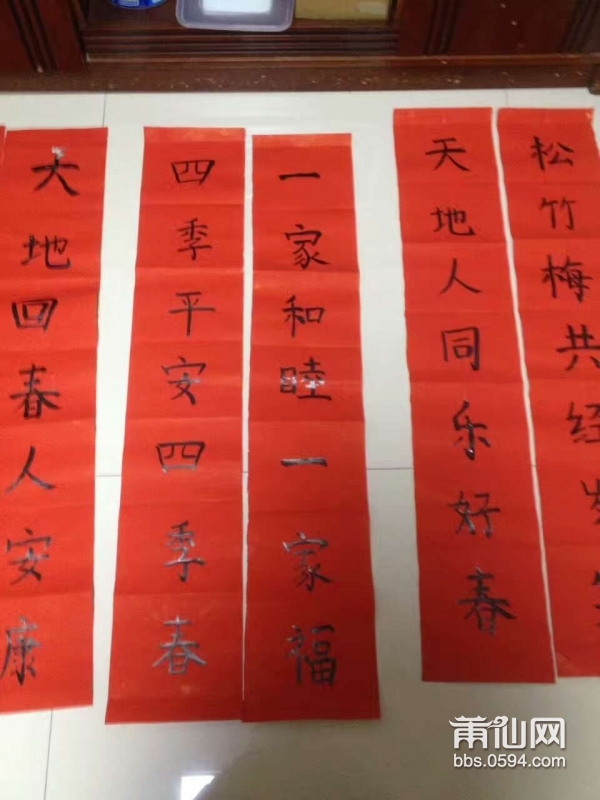 大地回春人安康
四季平安四季春
一家和睦一家福
天地人同乐好春
松竹梅共经岁寒
莆仙网
bbs.0594.com